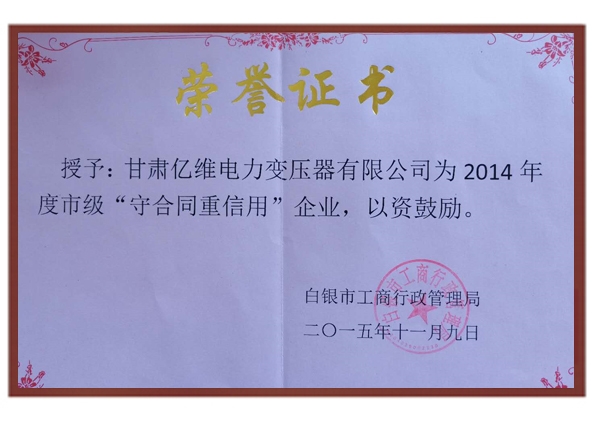 荣誉证书
授予：甘肃亿维电力变压器有限公司为 2014 年
度市级“守合同重信用”企业，以资鼓励。
白银市工商行政管理局
二〇一五年十一月九日